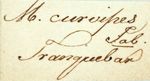 M. curvipes
Fab.
Tranquebar